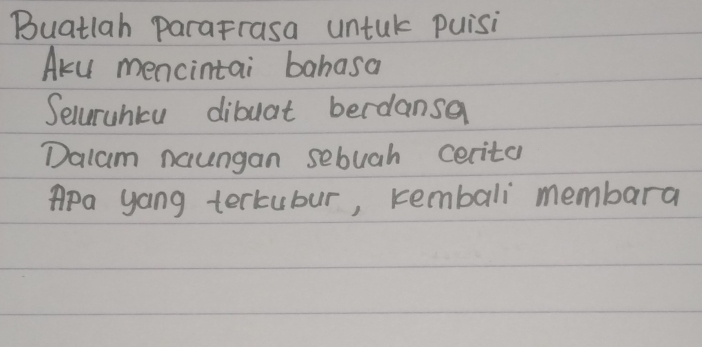 Buatlah Parafrasa untuk Puisi
Aku mencintai bahasa
Seluruhku dibuat berdansa
Dalam naungan sebuah cerita
Apa yang terkubur, kembali membara